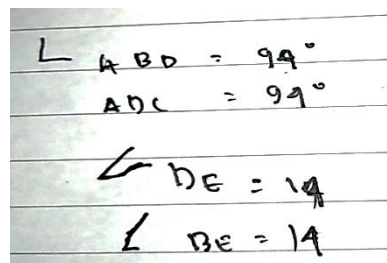 ∠ ABD = 94°
ADC = 94°
∠ DE = 14
∠ BE = 14